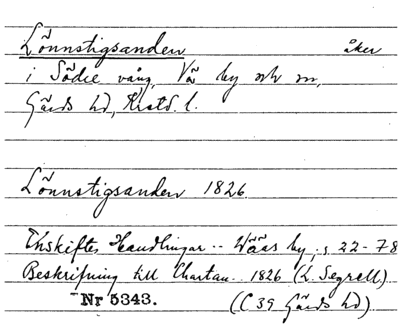 Lönnstigsanden åker
i Södre vång, Vä by och sn,
Gärds hd, Kristd. l.
Lönnstigsanden 1826.
Enskiftes Handlingar -- Wääs by, s 22-78
Beskrifning till Chartan - 1826 (L. Segrell)
Nr 5343. (C 39 Gärds hd)